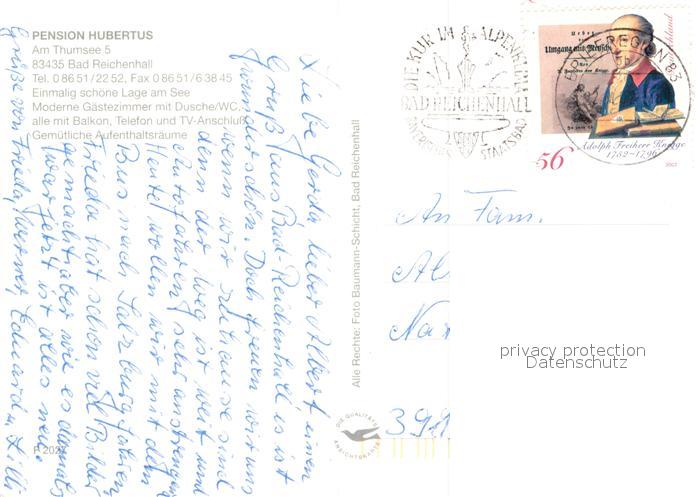 PENSION HUBERTUS
Am Thumsee 5
83435 Bad Reichenhall
Tel. 0 86 51 / 22 52, Fax 0 86 51 / 6 38 45
Einmalig schöne Lage am See
Moderne Gästezimmer mit Dusche/WC,
alle mit Balkon, Telefon und TV-Anschluß
Gemütliche Aufenthaltsräume
Liebe Gerda, lieber Albert einen
Gruß aus Bad-Reichenhall es ist
wunderschön. Doch freuen wir uns
wenn wir zuhause sind
denn der Weg ist weit und
Autofahren sehr anstrengend
Heute wollen wir mit dem
Bus nach Salzburg fahren
Frieda hat schon viel Bilder
gemacht, aber wie es damals
war jetzt ist alles neu.
Grüße von Frieda, Werner, Eduard u. Lilli
Alle Rechte: Foto Baumann-Schicht, Bad Reichenhall
DIE KUR IM ALPENKLIMA
BAD REICHENHALL
BAYERISCHES STAATSBAD
BRIEFREGION 83
Umgang mit Menschen
Deutschland
56
Adolph Freiherr Knigge
1752–1796
2002
An Fam.
Al
Na
398
privacy protection
Datenschutz
DIE QUALITÄTS
ANSICHTSKARTE